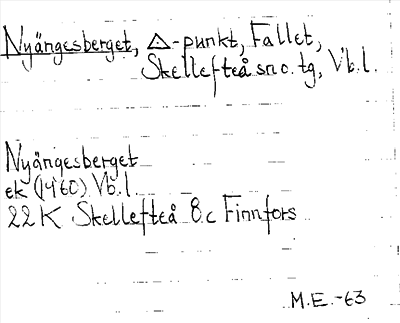 Nyängesberget, △-punkt, Fallet,
Skellefteå sn o. tg, Vb.l.
Nyängesberget
ek (1960) Vb.l.
22 K Skellefteå 8c Finnfors
M.E.-63